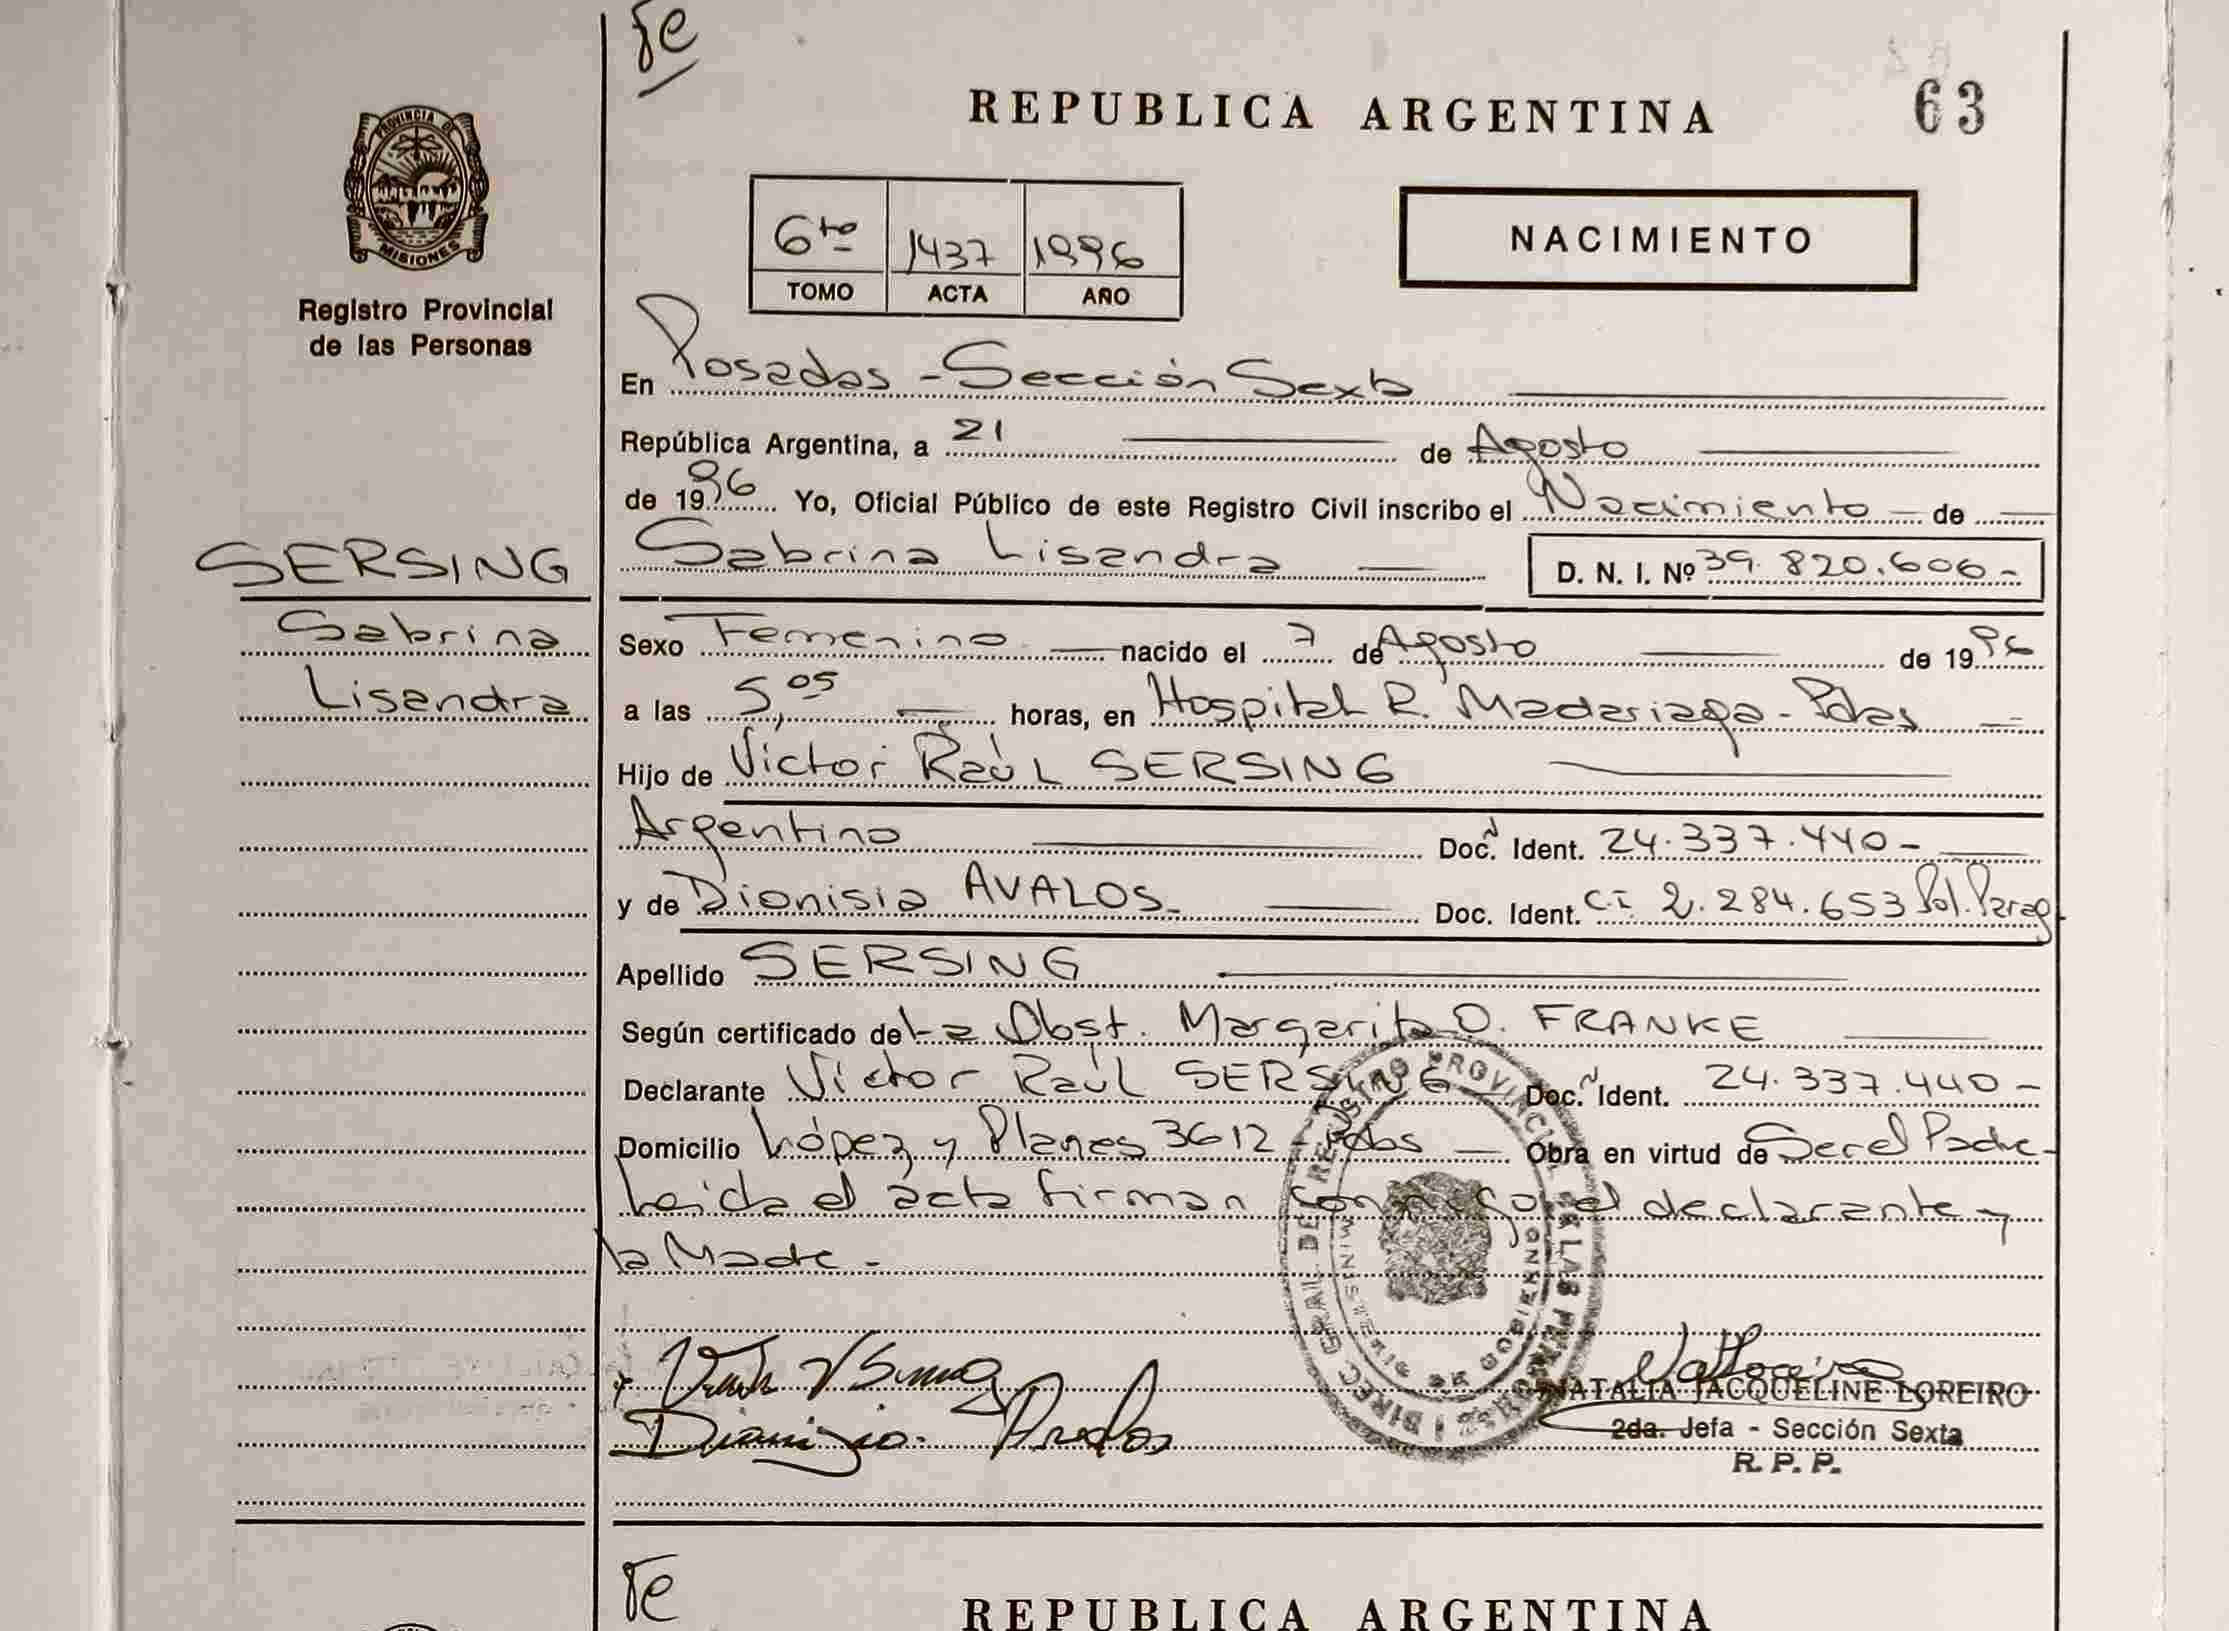 Te
REPUBLICA ARGENTINA
63
PROVINCIA DE
MISIONES
Registro Provincial
de las Personas
6to 1437 1996
TOMO ACTA AÑO
NACIMIENTO
En Posadas - Sección Sexta
República Argentina, a 21 de Agosto
de 1996 Yo, Oficial Público de este Registro Civil inscribo el Nacimiento - de
SERSING
Sabrina
Lisandra
Sabrina Lisandra D. N. I. Nº 39.820.606-
Sexo Femenino nacido el 7 de Agosto de 1996
a las 5,05 horas, en Hospital R. Madariaga - Pdas
Hijo de Víctor Raúl SERSING
Argentino Doc. Ident. 24.337.440-
y de Dionisia AVALOS- Doc. Ident. C.I. 2.284.653 Pol. Parag
Apellido SERSING
Según certificado de La Obst. Margarita O. FRANKE
Declarante Víctor Raúl SERSING Doc. Ident. 24.337.440-
Domicilio López y Planes 3612 - Pdas Obra en virtud de Ser el Padre-
Leida el acta firman conmigo el declarante y
la Madre-
DIREC GRAL DE REGISTRO PROVINCIAL DE LAS PERSONAS
MINISTERIO DE GOBIERNO
NATALIA JACQUELINE LOREIRO
2da. Jefa - Sección Sexta
R. P. P.
Te
REPUBLICA ARGENTINA